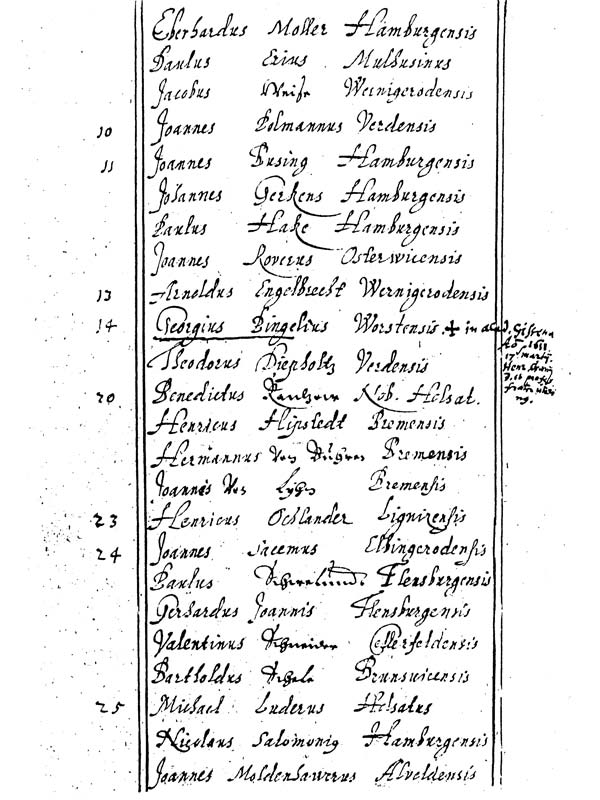 Eberhardus Moller Hamburgensis
Paulus Erius Mulhusinus
Jacobus Weise Wernigerodensis
10 Joannes Polmannus Verdensis
11 Joannes Busing Hamburgensis
Johannes Gerkens Hamburgensis
Paulus Hake Hamburgensis
Joannes Roverus Osterwicensis
13 Arnoldus Engelbrecht Wernigerodensis
14 Georgius Bingelius Worstensis + in acad. Gissena
Aō. 1611
17 martij
Theodorus Diepholtz Verdensis
20 Benedictus Rantzow Nob. Holsat.
Henricus Hipstedt Bremensis
Hermannus Von Bühren Bremensis
Joannes Von Bremensis
23 Henricus Ochlander Lignizensis
24 Joannes Sacemus Elbingerodensis
Paulus Flensburgensis
Gerhardus Joannis Flensburgensis
Valentinus Schneider Cellerfeldensis
Bartholdus Schele Brunsvicensis
25 Michael Luderus Holsatus
Nicolaus Salomonig Hamburgensis
Joannes Moldenhawerus Alveldensis